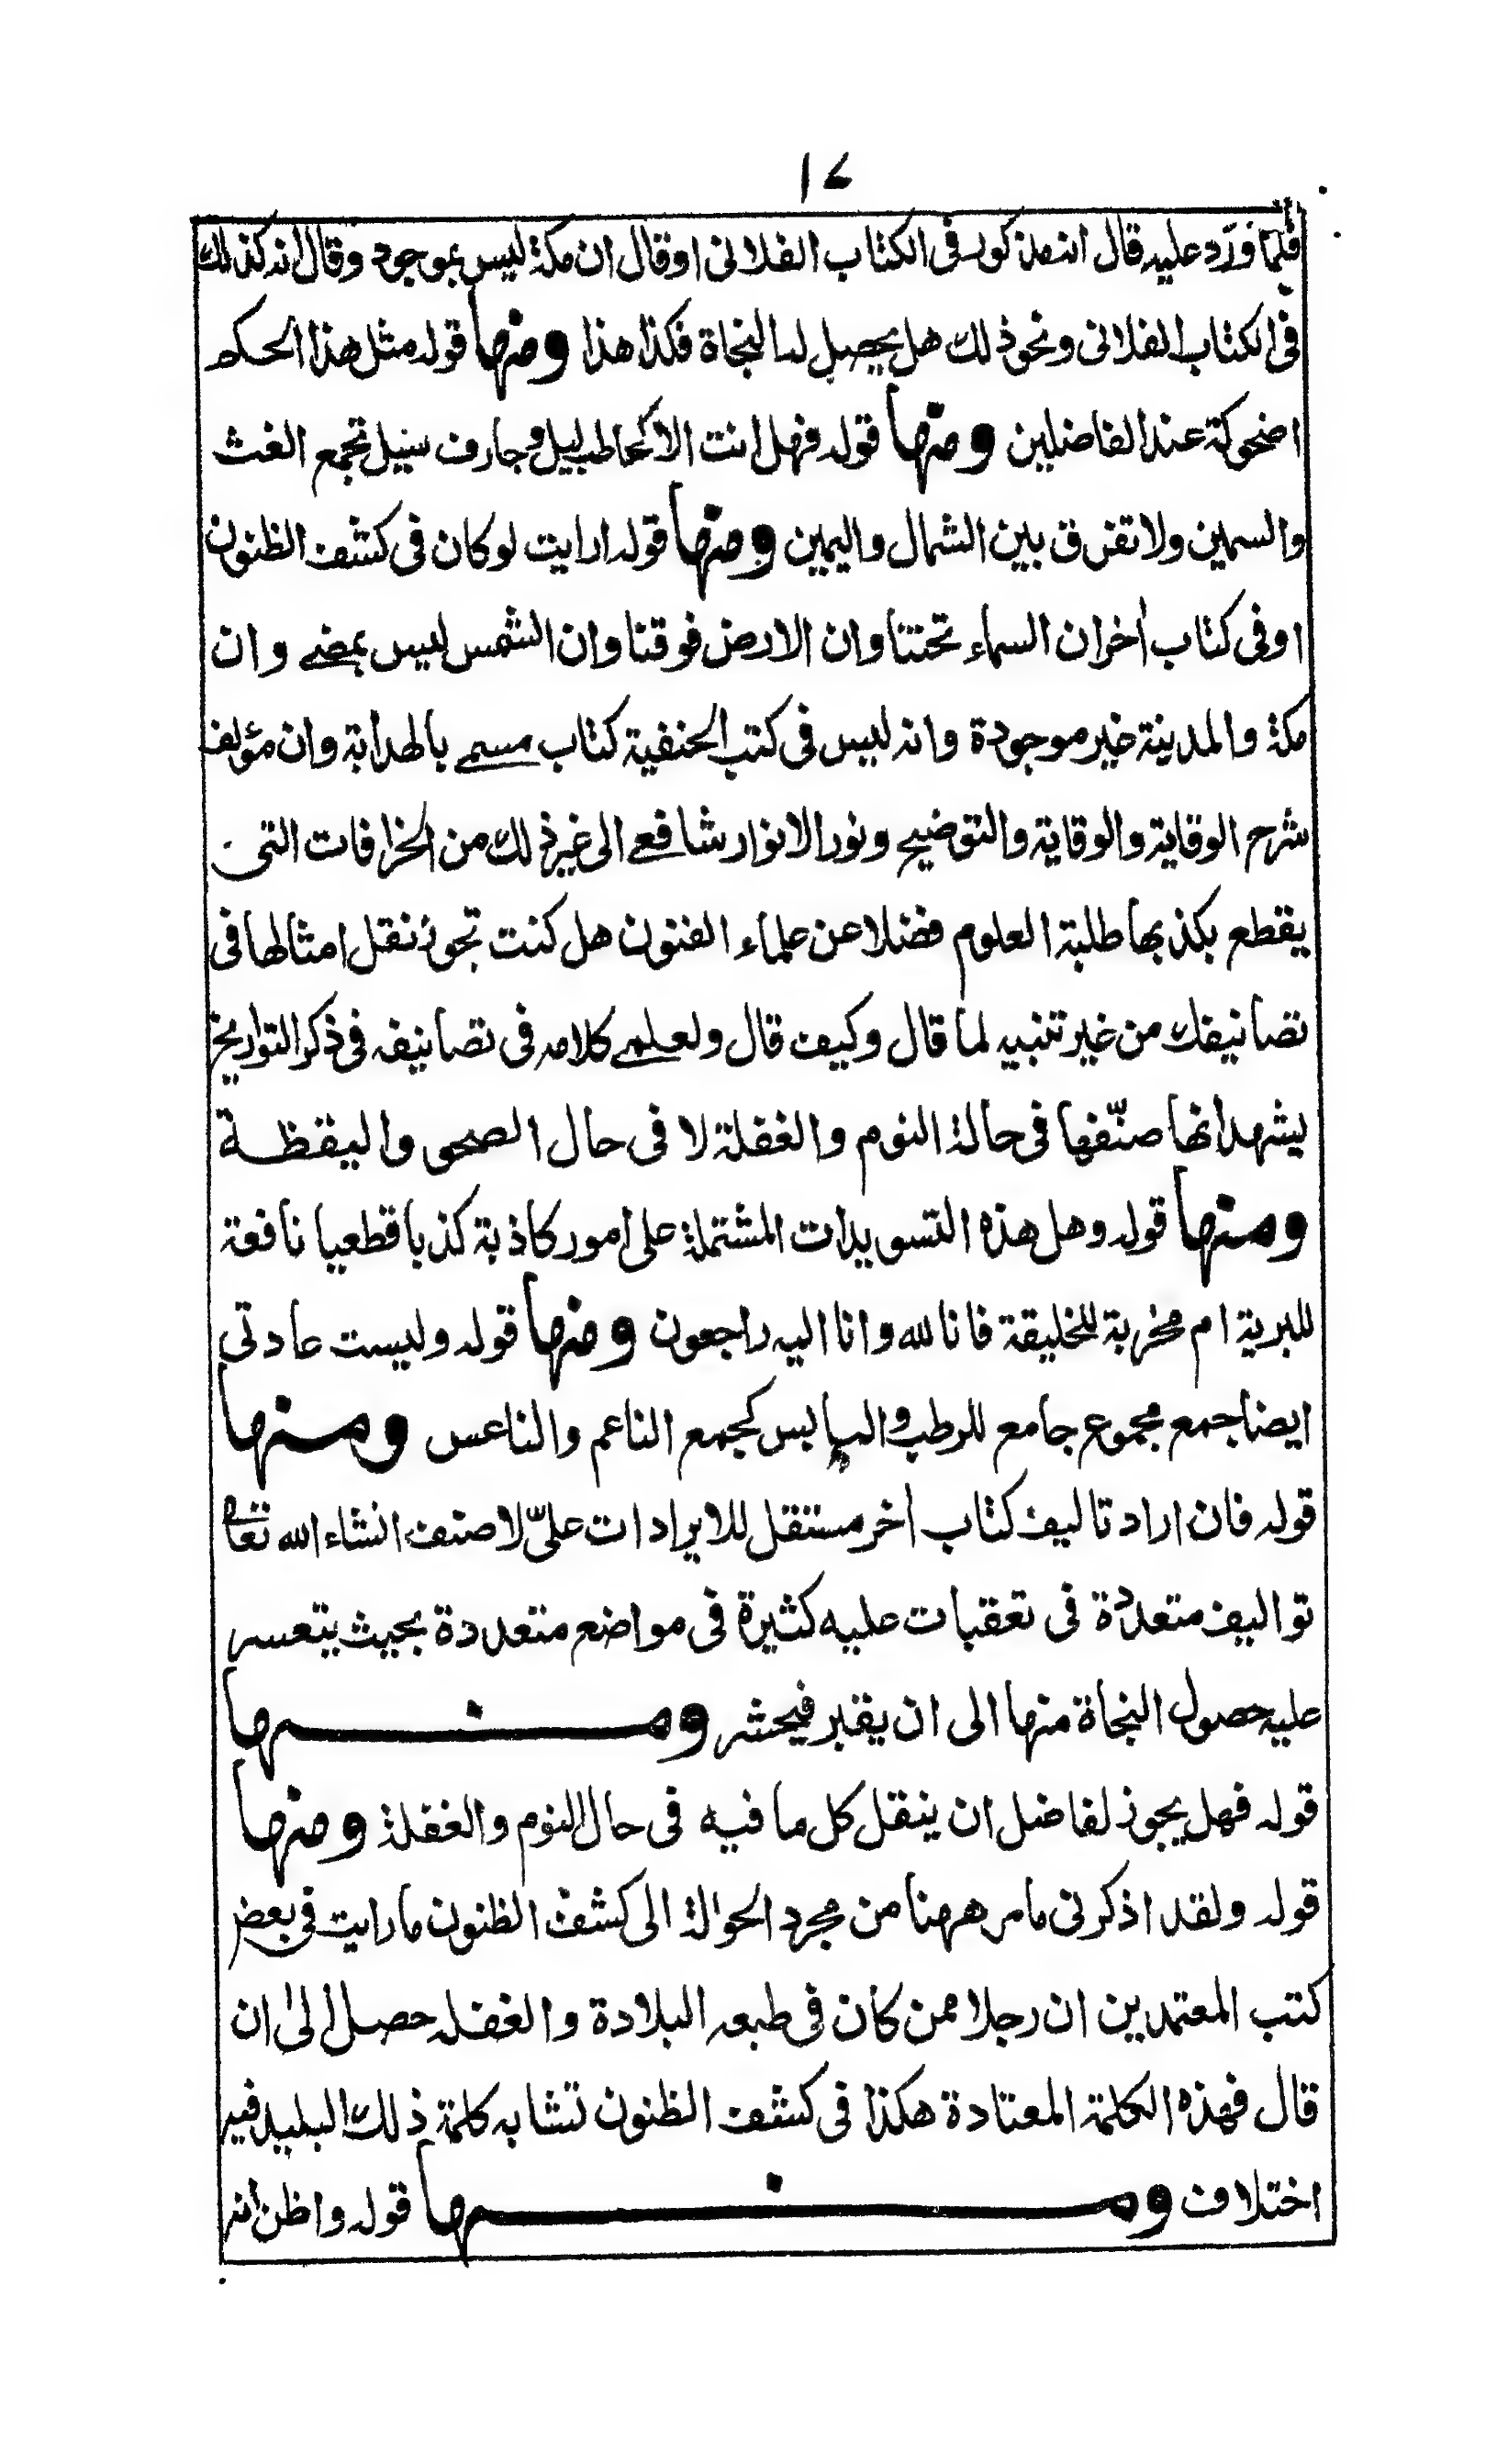 ١٧
فلما ورد عليه قال انه مذكور فى الكتاب الفلانى او قال ان مكة ليس بموجود وقال انه كذلك
فى الكتاب الفلانى ونحو ذلك هل يحصل له النجاة فكذا هذا ومنها قوله مثل هذا الحكم
اضحوكة عند الفاضلين ومنها قوله فهل انت الا كحاطب ليل وجارف سيل تجمع الغث
والسمين ولا تفرق بين الشمال واليمين ومنها قوله ارايت لو كان فى كشف الظنون
او فى كتاب اٰخر ان السماء تحتنا وان الارض فوقنا وان الشمس ليس بمضے وان
مكة والمدينة غير موجودة وانه ليس فى كتب الحنفية كتاب مسمے بالهداية وان مؤلف
شرح الوقاية والوقاية والتوضيح ونور الانوار شافعے الى غير ذلك من الخرافات التى
يقطع بكذبها طلبة العلوم فضلا عن علماء الفنون هل كنت تجوز نقل امثالها فى
تصانيفك من غير تنبيه لما قال وكيف قال ولعلمے كلامه فى تصانيفه فى ذكر التواريخ
يشهد انها صنّفها فى حالة النوم والغفلة لا فى حال الصحى واليقظة
ومنها قوله وهل هذه التسويدات المشتملة على امور كاذبة كذبا قطعيا نافعة
للبرية ام مخربة للخليقة فانا لله وانا اليه راجعون ومنها قوله وليست عادتى
ايضا جمع مجموع جامع للرطب واليابس كجمع الناعم والناعس ومنها
قوله فان اراد تاليف كتاب اٰخر مستقل للايرادات علىّ لاصنف انشاء الله تعا
تواليف متعددة فى تعقبات عليه كثيرة فى مواضع متعددة بحيث يتعسر
عليه حصول النجاة منها الى ان يقبر فيحشر ومنها
قوله فهل يجوز لفاضل ان ينقل كل ما فيه فى حال النوم والغفلة ومنها
قوله ولقد اذكرنى مامر ههنا من مجرد الحوالة الى كشف الظنون ما رايت فى بعض
كتب المعتمدين ان رجلا ممن كان فى طبعه البلادة والغفله حصل الٰى ان
قال فهذه الكلمة المعتادة هكذا فى كشف الظنون تشابه كلمة ذلك البليد فيه
اختلاف ومنها قوله واظن انه